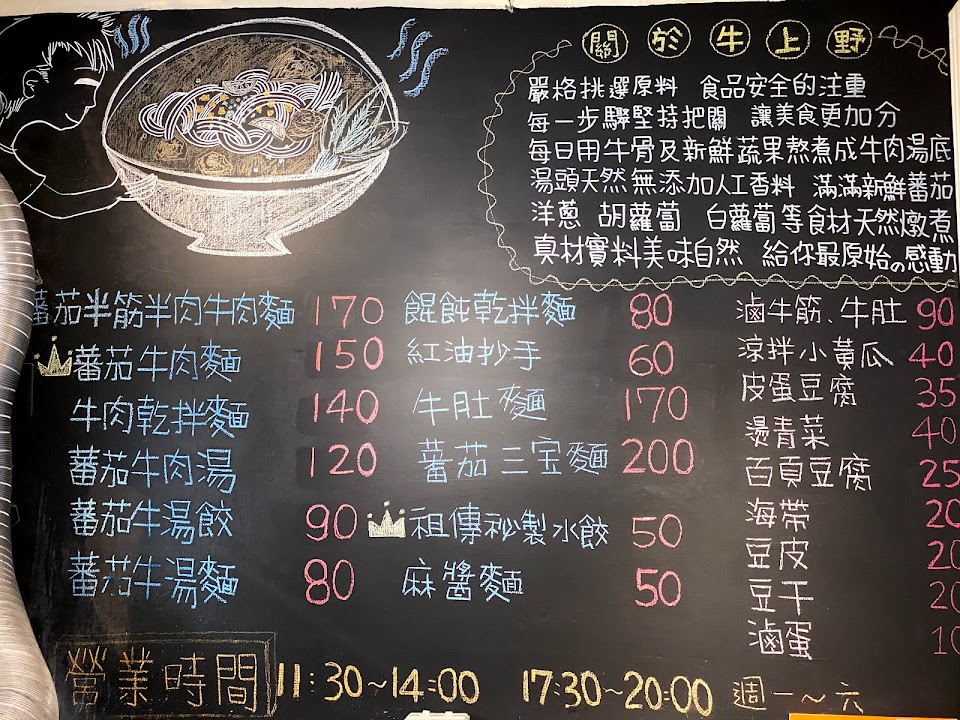 關於牛上野
嚴格挑選原料 食品安全的注重
每一步驟堅持把關 讓美食更加分
每日用牛骨及新鮮蔬果熬煮成牛肉湯底
湯頭天然無添加人工香料 滿滿新鮮蕃茄
洋蔥 胡蘿蔔 白蘿蔔等食材天然燉煮
真材實料美味自然 給你最原始の感動
蕃茄半筋半肉牛肉麵 170
蕃茄牛肉麵 150
牛肉乾拌麵 140
蕃茄牛肉湯 120
蕃茄牛湯餃 90
蕃茄牛湯麵 80
餛飩乾拌麵 80
紅油抄手 60
牛肚麵 170
蕃茄三宝麵 200
祖傳祕製水餃 50
麻醬麵 50
滷牛筋、牛肚 90
涼拌小黃瓜 40
皮蛋豆腐 35
燙青菜 40
百頁豆腐 25
海帶 20
豆皮 20
豆干 20
滷蛋 10
營業時間 11:30~14:00 17:30~20:00 週一~六